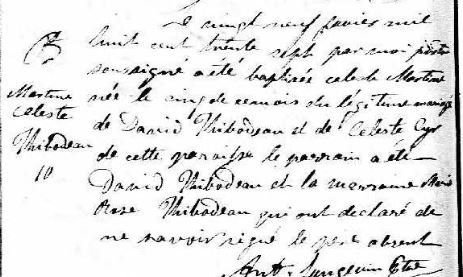 Le vingt neuf janvier mil
huit cent trente sept par moi prêtre
soussigné a été baptisée celeste Martine
née le cinq de ce mois du légitime mariage
de David Thibodeau et de Celeste Cyr
de cette paroisse le parrain a été
David Thibodeau et la marraine Marie
Rose Thibodeau qui ont declaré de
ne savoir signé le pere absent
Ant. Langevin Ptre
B
Martine
Celeste
Thibodeau
10